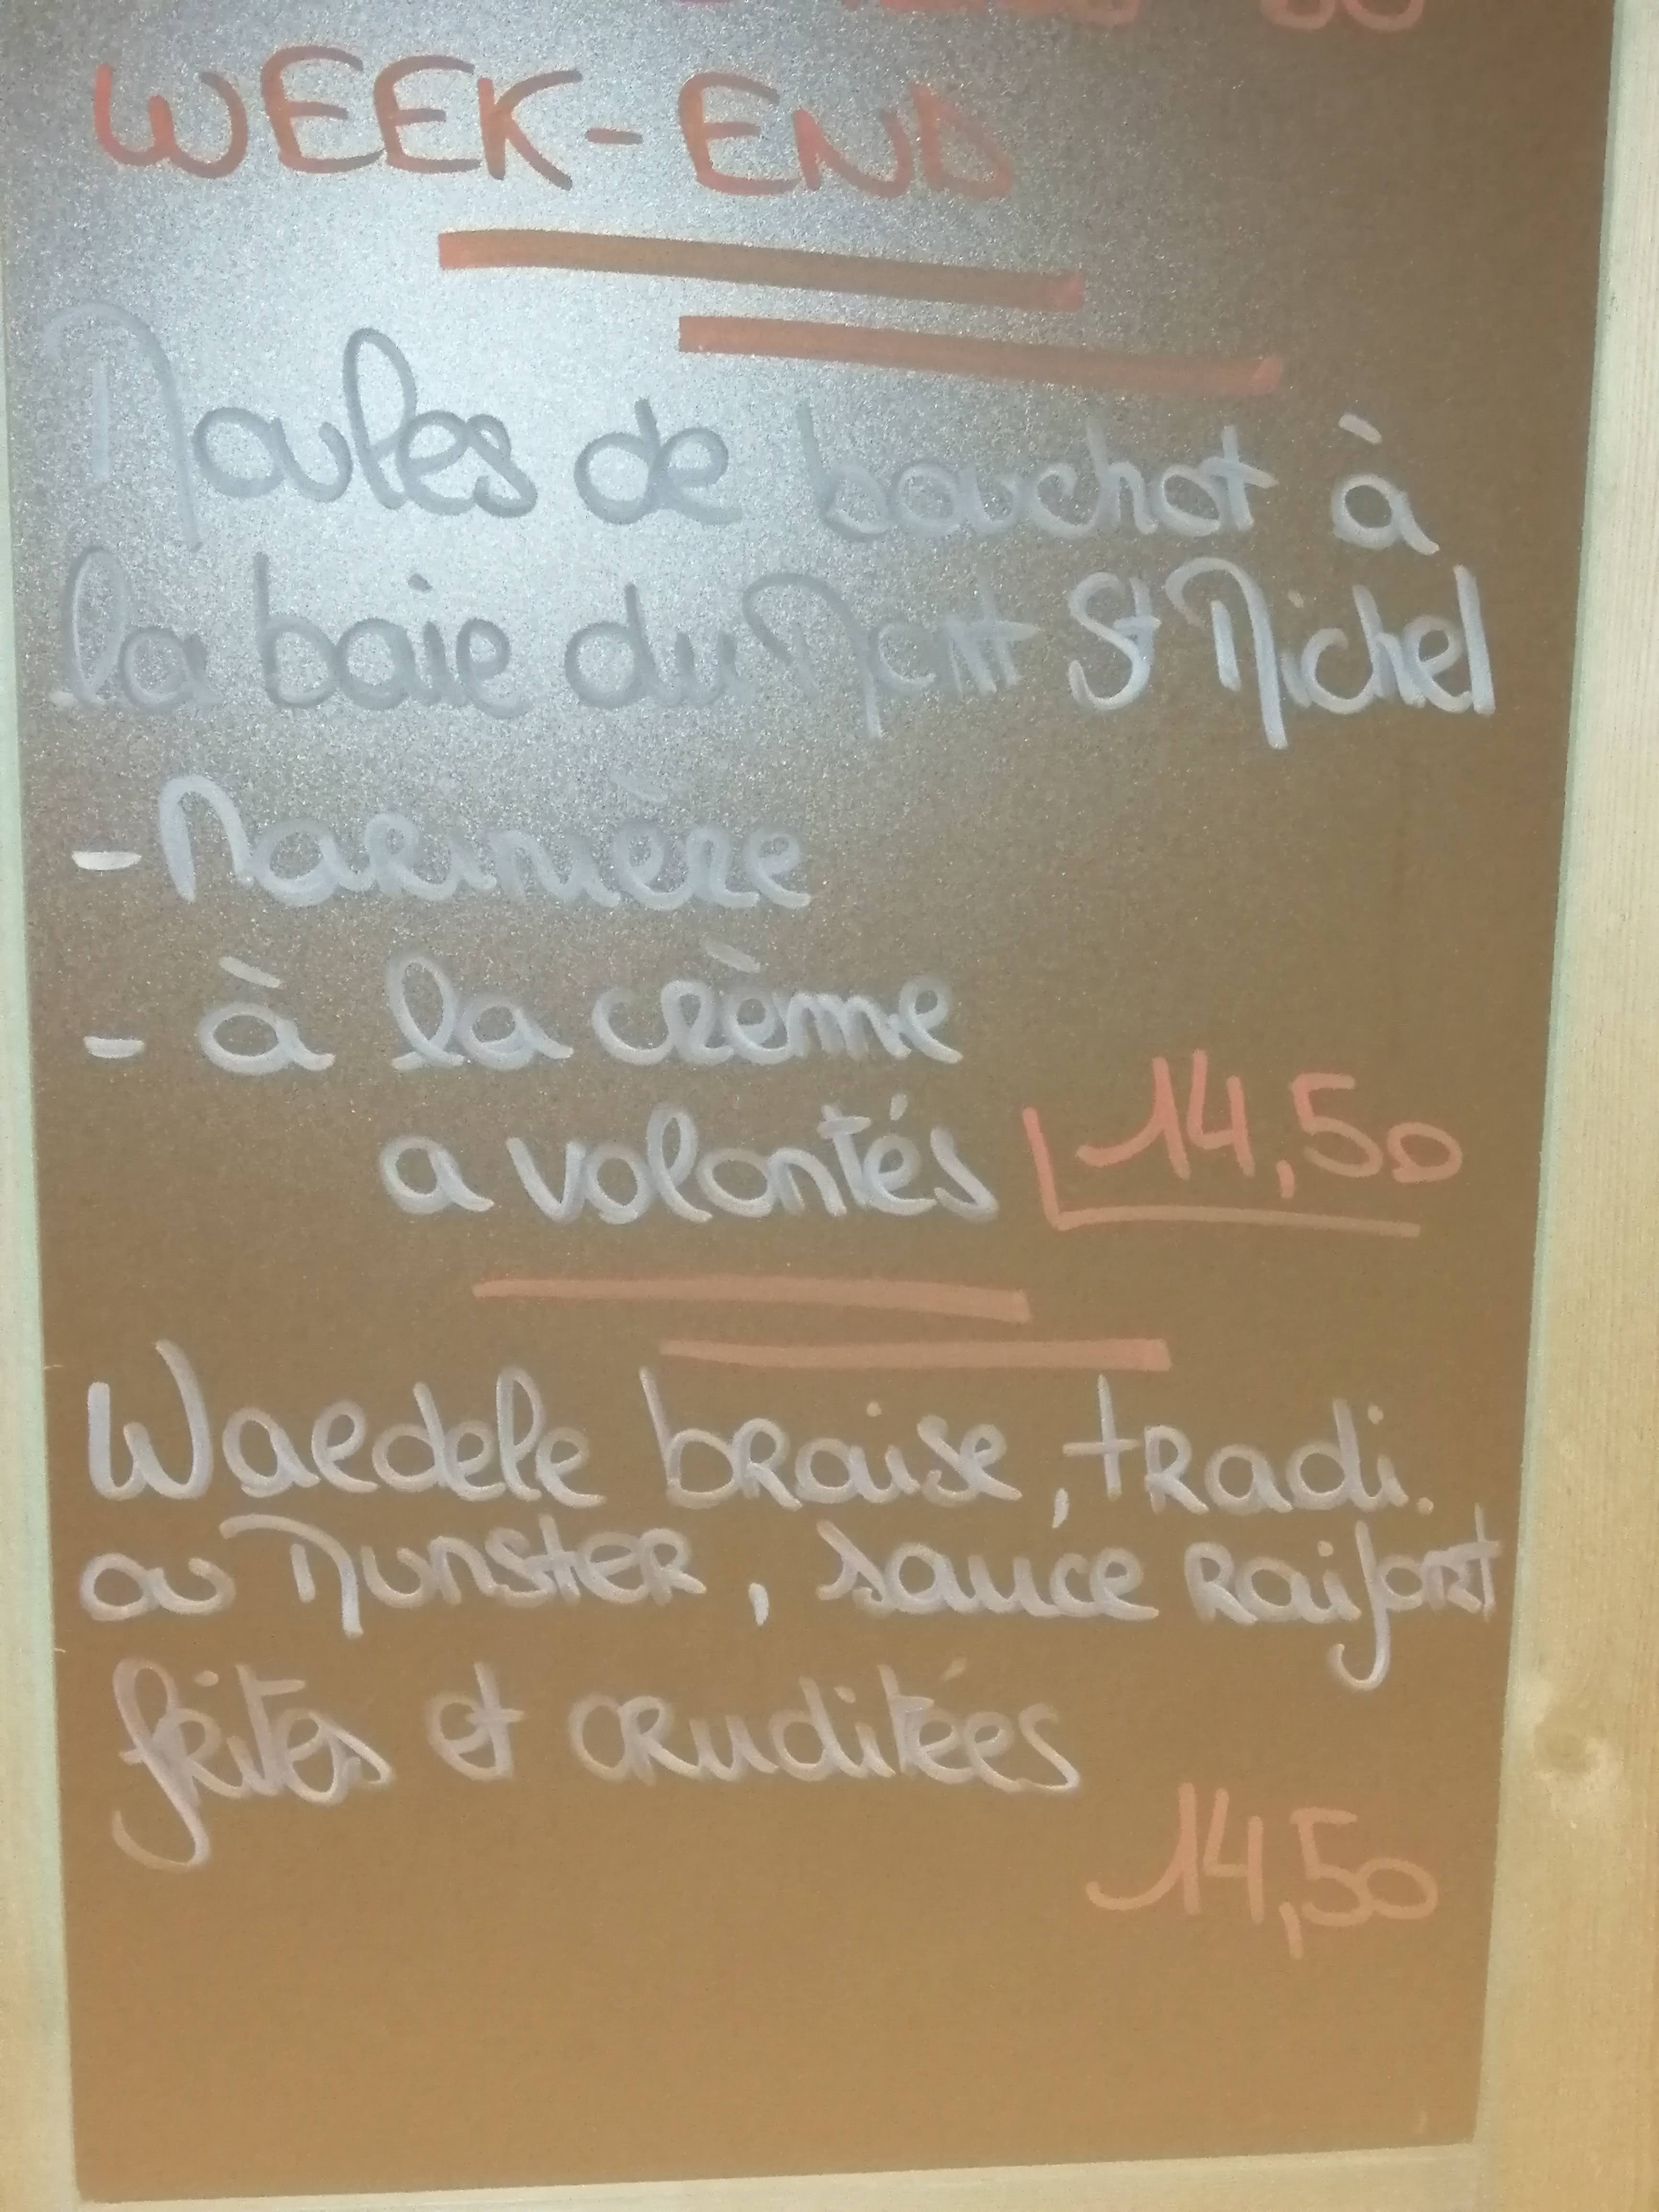 WEEK-END
Moules de bouchot à
la baie du Mont St Michel
- Marinière
- à la crème
a volontés 14,50
Waedele braise, tradi.
ou Munster, sauce Raifort
frites et cruditées
14,50